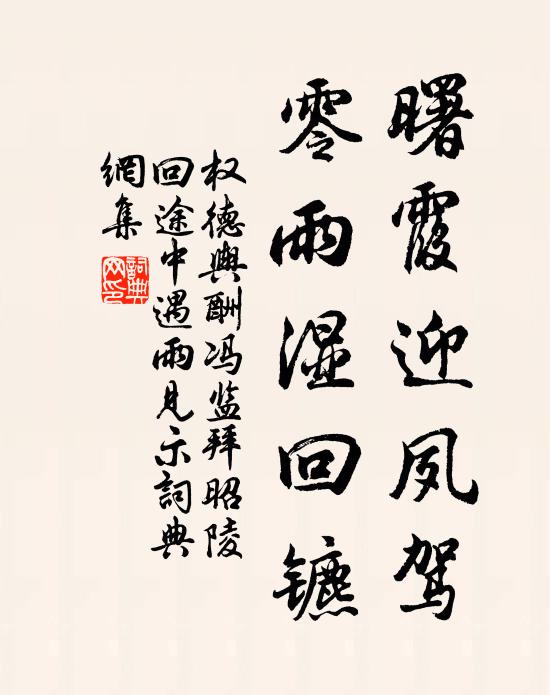 曙霞迎夙驾
零雨湿回镳
权德舆酬冯监拜昭陵
回途中遇雨见示詞典
網集
詞典網印